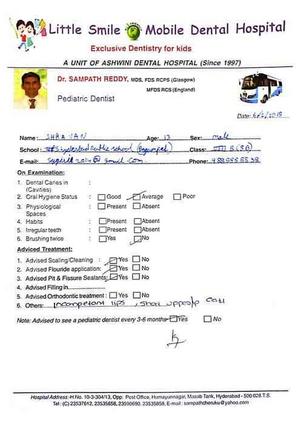 Little Smile Mobile Dental Hospital
Exclusive Dentistry for kids
A UNIT OF ASHWINI DENTAL HOSPITAL (Since 1997)
Dr. SAMPATH REDDY, MDS, FDS RCPS (Glasgow)
MFDS RCS (England)
Pediatric Dentist
Date:
Name: Age: 13 Sex: male
School: Class:
E-mail: Phone:
On Examination:
1. Dental Caries in :
(Cavities)
2. Oral Hygiene Status : Good Average Poor
3. Physiological : Present Absent
Spaces
4. Habits : Present Absent
5. Irregular teeth : Present Absent
6. Brushing twice : Yes No
Adviced Treatment:
1. Advised Scaling/Cleaning : Yes No
2. Advised Flouride application: Yes No
3. Advised Pit & Fissure Sealants: Yes No
4. Advised Filling in
5. Advised Orthodontic treatment : Yes No
6. Others: Incompetent lips,
Note: Advised to see a pediatric dentist every 3-6 months Yes No
Hospital Address: H.No. 10-3-304/13, Opp. Post Office, Humayunnagar, Masab Tank, Hyderabad - 500 028 T.S.